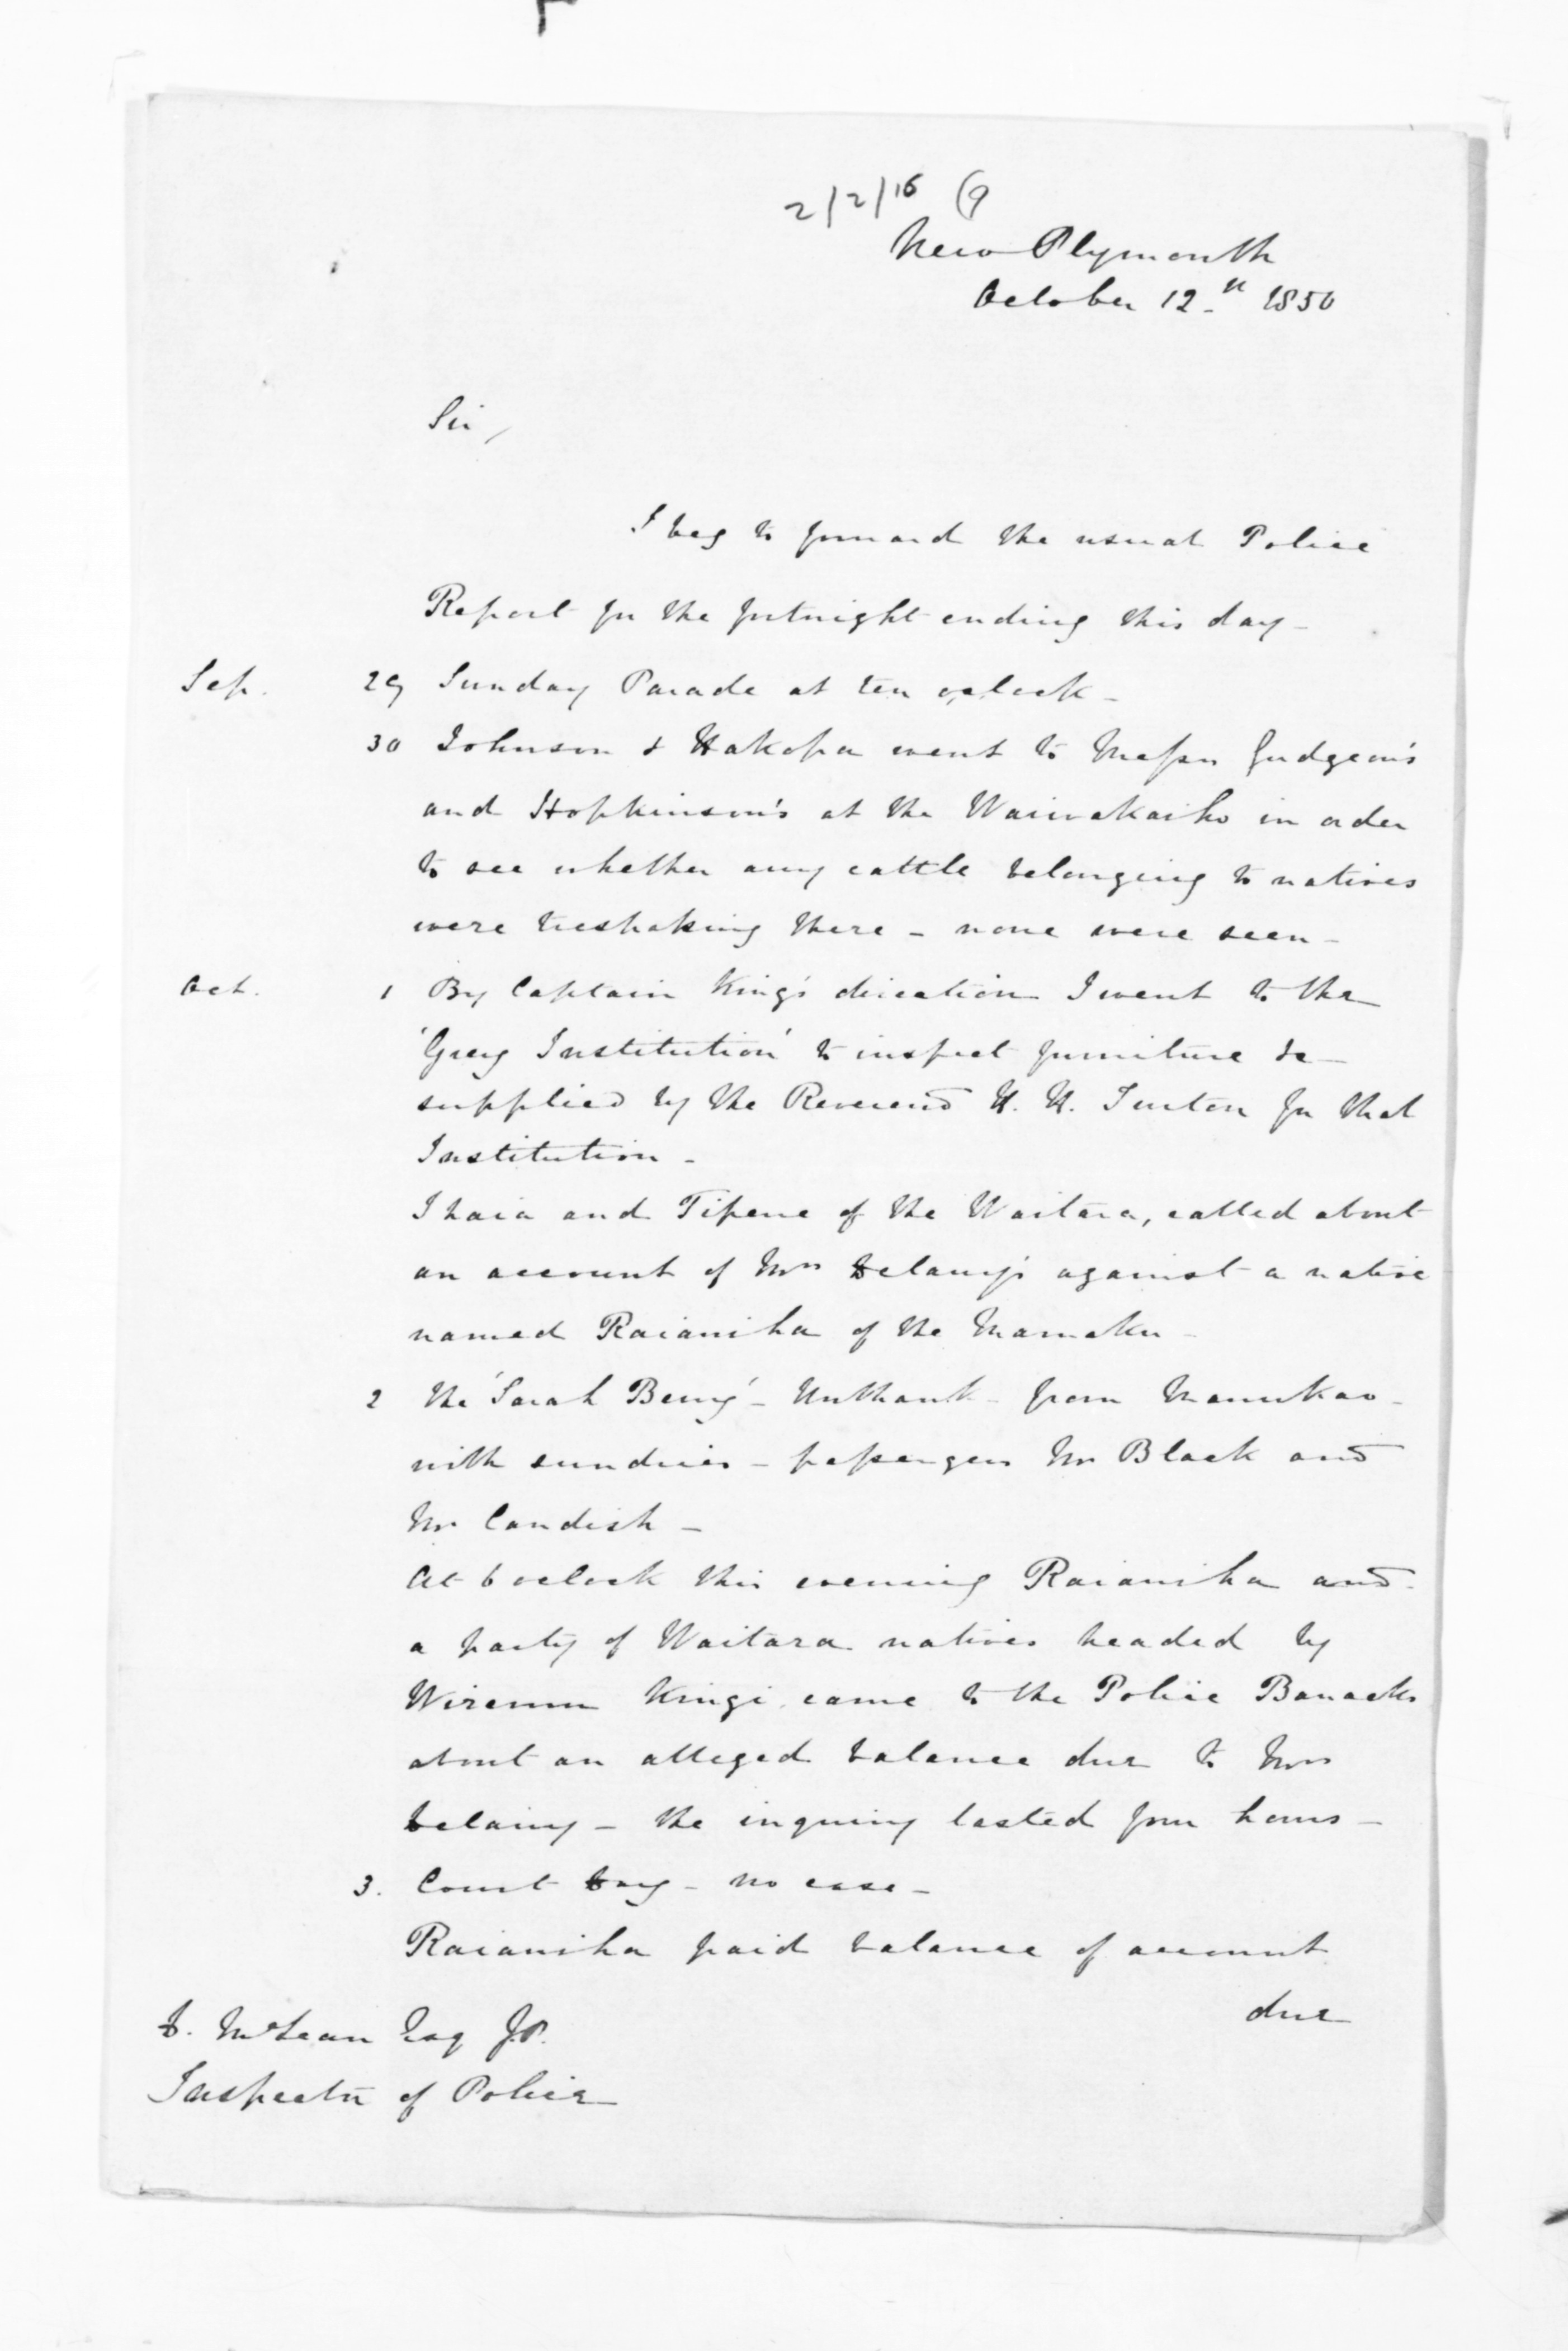 2/2/16 (9
New Plymouth
October 12th 1850
Sir,
I beg to forward the usual Police
Report for the fortnight ending this day -
Sep. 29 Sunday Parade at ten oclock -
30 Johnson & Hakopa went to Messrs Gudgeon's
and Hopkinson's at the Waiwakaiho in order
to see whether any cattle belonging to natives
were trespassing there - none were seen -
Oct. 1 By Captain King's direction I went to the
'Grey Institution' to inspect furniture &c -
supplied by the Reverend H. H. Turton for that
Institution -
Ihaia and Tipene of the Waitara, called about
an account of Mrs Delamy's against a native
named Raianiha of the Mamaku -
2 The 'Sarah Berry' - Unthank - from Manukao -
with sundries - passengers Mr Black and
Mr Candish -
At 6 oclock this evening Raianiha and
a party of Waitara natives headed by
Wiremu Kingi came to the Police Barracks
about an alleged balance due to Mrs
Delamy - the inquiry lasted four hours -
3. Court Day - no case -
Raianiha paid balance of account
due
D. McLean Esq J.P.
Inspector of Police